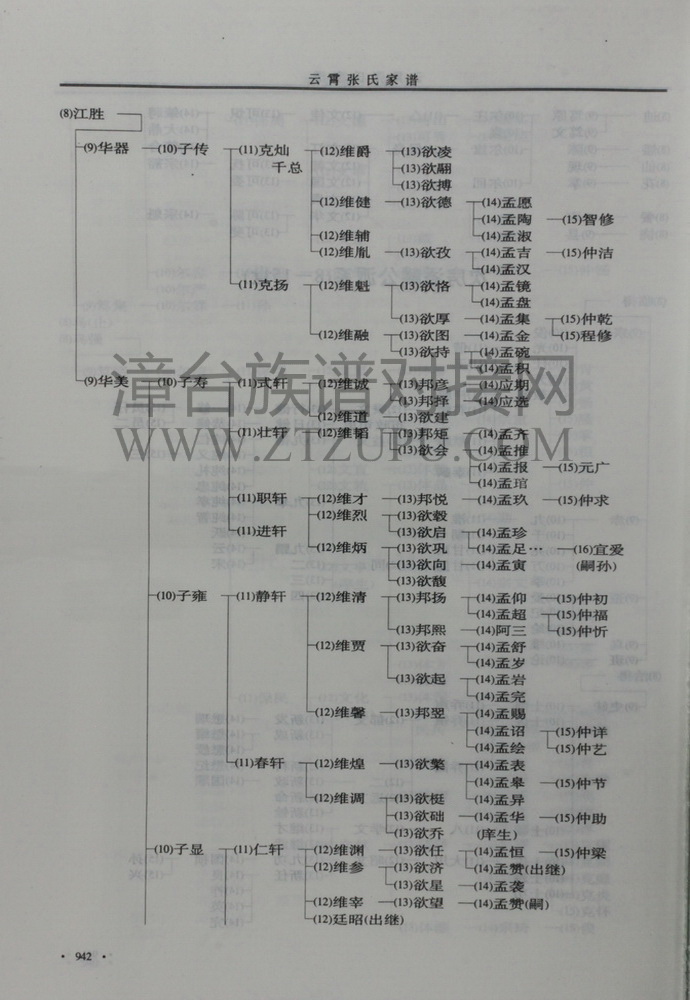 云霄张氏家谱
(8)江胜
(9)华器 (10)子传 (11)克灿 (12)维爵 (13)欲凌
千总 (13)欲翮
(13)欲搏
(12)维健 (13)欲德 (14)孟愿
(14)孟陶 (15)智修
(12)维辅 (14)孟淑
(12)维胤 (13)欲孜 (14)孟吉 (15)仲洁
(14)孟汉
(11)克扬 (12)维魁 (13)欲恪 (14)孟镜
(14)孟盘
(13)欲厚 (14)孟集 (15)仲乾
(12)维融 (13)欲图 (14)孟金 (15)程修
(13)欲持 (14)孟碗
(14)孟积
(9)华美 (10)子寿 (11)武轩 (12)维诚 (13)邦彦 (14)应期
(13)邦择 (14)应选
(12)维道 (13)欲建
(11)壮轩 (12)维韬 (13)邦矩 (14)孟齐
(13)欲会 (14)孟推
(14)孟报 (15)元广
(14)孟琯
(11)职轩 (12)维才 (13)邦悦 (14)孟玖 (15)仲求
(12)维烈 (13)欲毅
(11)进轩 (13)欲启 (14)孟珍
(12)维炳 (13)欲巩 (14)孟足… (16)宜爱
(13)欲向 (14)孟寅 (嗣孙)
(13)欲馥
(10)子雍 (11)静轩 (12)维清 (13)邦扬 (14)孟仰 (15)仲初
(14)孟超 (15)仲福
(13)邦熙 (14)阿三 (15)仲忻
(12)维贾 (13)欲奋 (14)孟舒
(14)孟岁
(13)欲起 (14)孟岩
(14)孟完
(12)维馨 (13)邦翌 (14)孟赐
(14)孟诏 (15)仲详
(14)孟绘 (15)仲艺
(11)春轩 (12)维煌 (13)欲繁 (14)孟表
(14)孟皋 (15)仲节
(12)维调 (13)欲梃 (14)孟异
(13)欲础 (14)孟华 (15)仲助
(13)欲乔 (庠生)
(10)子显 (11)仁轩 (12)维渊 (13)欲任 (14)孟恒 (15)仲梁
(12)维参 (13)欲济 (14)孟赞(出继)
(13)欲星 (14)孟袭
(12)维宰 (13)欲望 (14)孟赞(嗣)
(12)廷昭(出继)
漳台族谱对接网
WWW.ZTZUPU.COM
· 942 ·